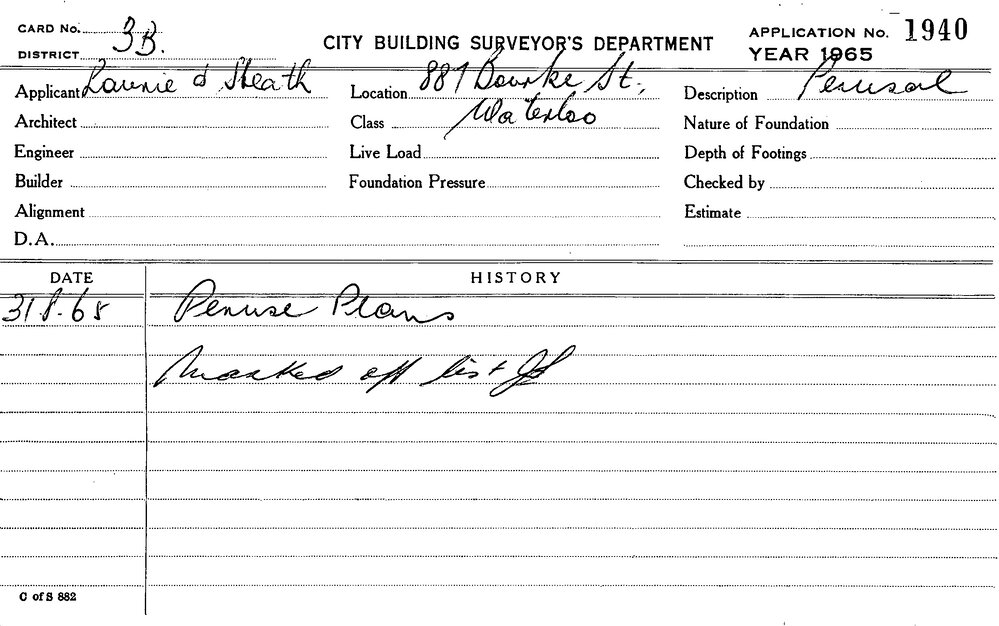 CARD No. 3B.
DISTRICT
CITY BUILDING SURVEYOR'S DEPARTMENT
APPLICATION No. 1940
YEAR 1965
Applicant Lawrie & Sheath
Location 887 Bourke St.,
Description Perusal
Architect
Class Waterloo
Nature of Foundation
Engineer
Live Load
Depth of Footings
Builder
Foundation Pressure
Checked by
Alignment
Estimate
D.A.
DATE
HISTORY
31 8.65 Peruse Plans
Marked off list
C of S 882